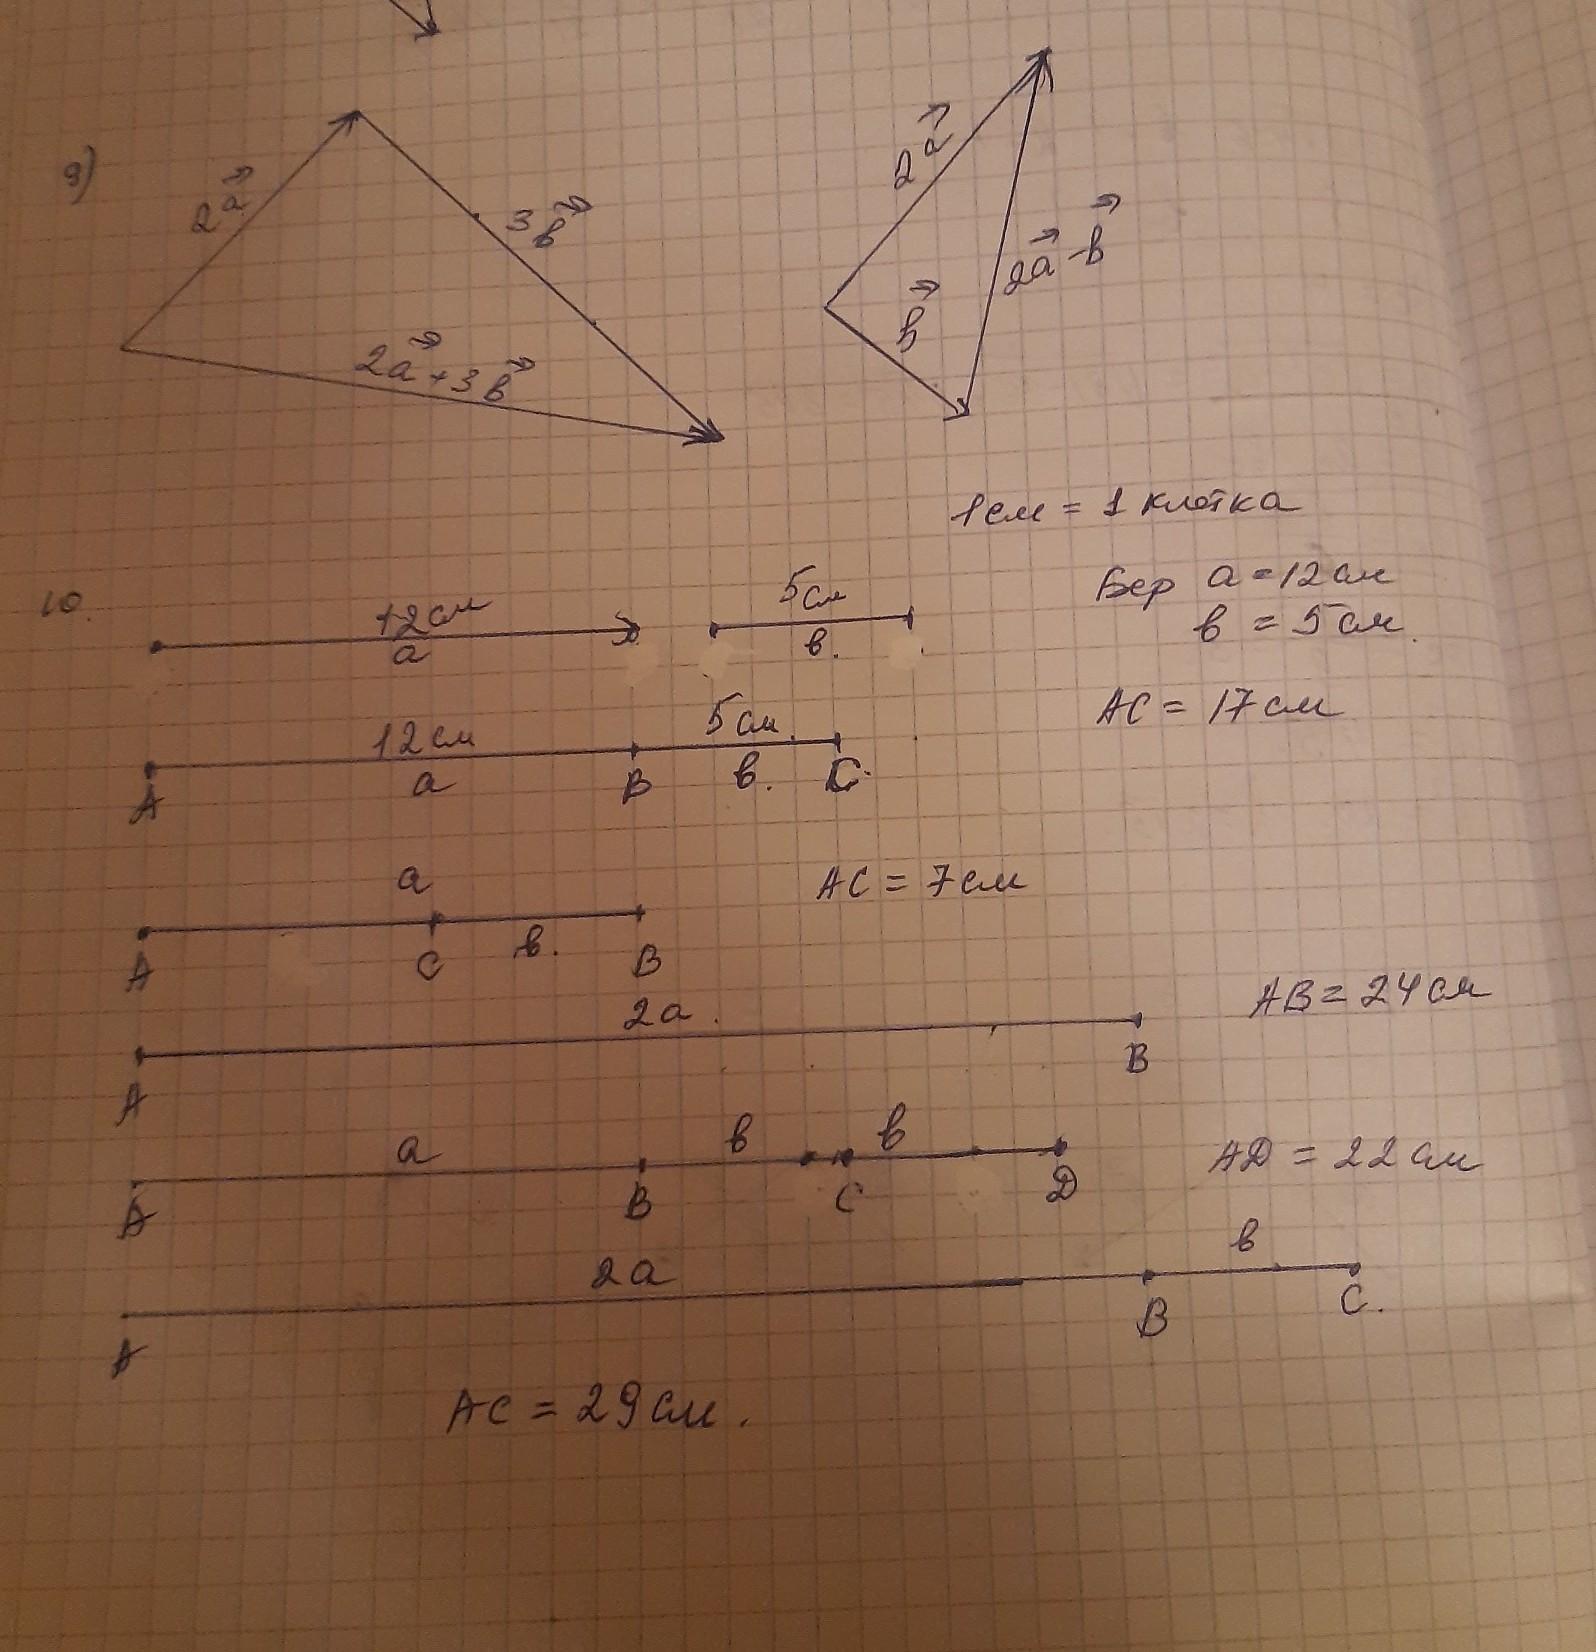 9)
2a⃗
3b⃗
2a⃗+3b⃗
2a⃗
b⃗
2a⃗-b⃗
1см = 1 клетка
10.
12см
a
5см
в.
Бер a=12см
в = 5см.
12см
a
5см
в.
A
B
C.
AC = 17см
a
в.
A
C
B
AC = 7см
2a.
A
B
AB = 24см
a
в
в
A
B
C
D
AD = 22см
2a
в
A
B
C.
AC = 29см.